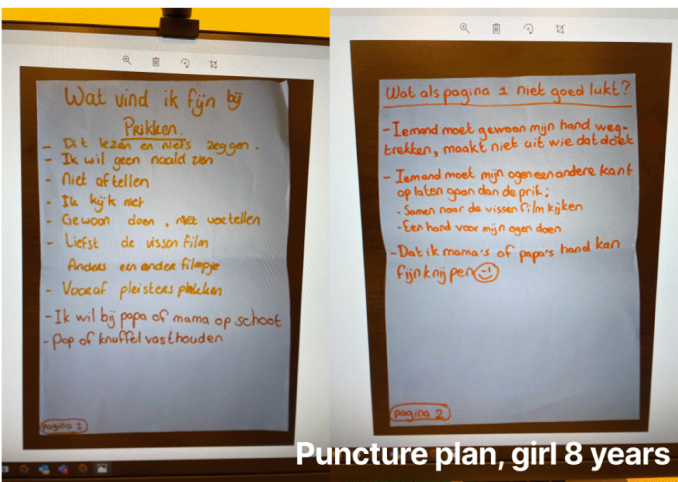 Wat vind ik fijn bij
Prikken.
- Dit lezen en niets zeggen.
- Ik wil geen naald zien
- Niet aftellen
- Ik kijk niet
- Gewoon doen, niet vertellen
- Liefst de vissen film
Anders een ander filmpje
- Vooraf pleisters plakken
- Ik wil bij papa of mama op schoot
- pop of knuffel vasthouden
pagina 1
Wat als pagina 1 niet goed lukt?
- Iemand moet gewoon mijn hand weg-
trekken, maakt niet uit wie dat doet
- Iemand moet mijn ogen een andere kant
op laten gaan dan de prik;
. Samen naar de vissen film kijken
- Een hand voor mijn ogen doen
- Dat ik mama's of papa's hand kan
fijn knijpen
pagina 2
Puncture plan, girl 8 years